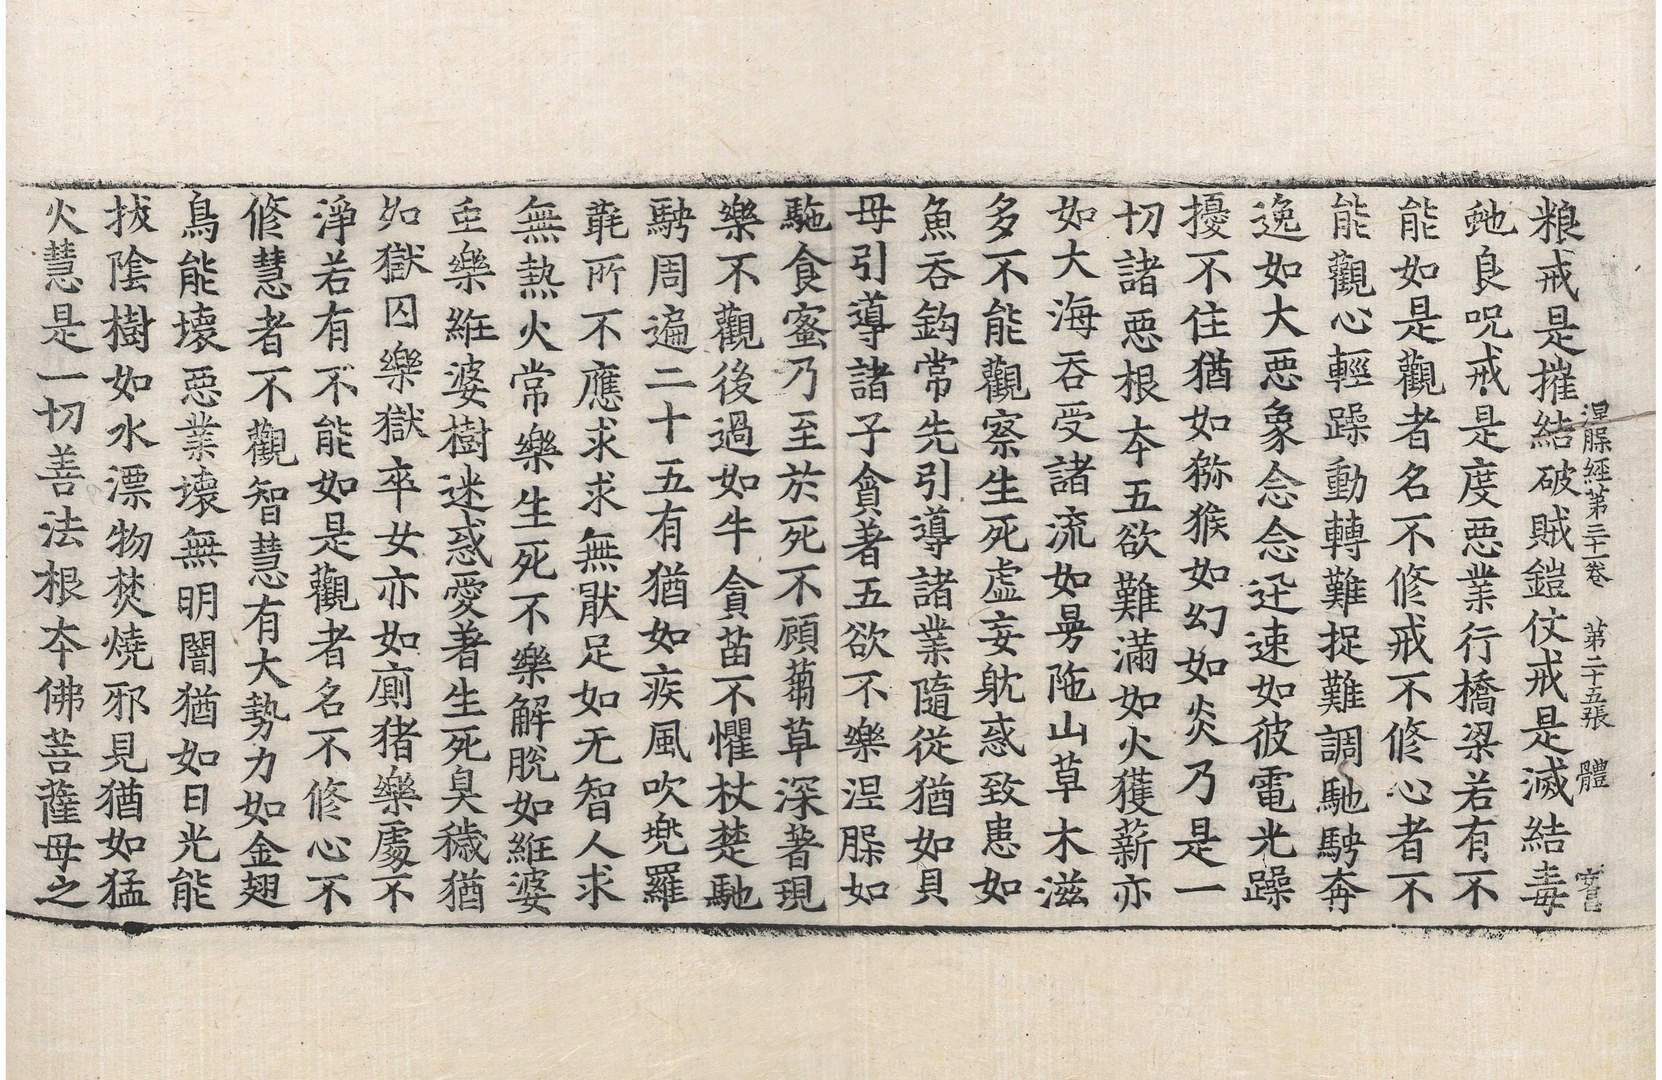 涅槃經苐三十一卷 苐二十五張 體
粮戒是摧結破賊鎧仗戒是滅結毒
虵良呪戒是度惡業行橋梁若有不
能如是觀者名不修戒不修心者不
能觀心輕躁動轉難捉難調馳騁奔
逸如大惡象念念迅速如彼電光躁
擾不住猶如獼猴如幻如炎乃是一
切諸惡根本五欲難滿如火獲薪亦
如大海吞受諸流如㬅陁山草木滋
多不能觀察生死虛妄躭惑致患如
魚吞鈎常先引導諸業隨從猶如貝
母引導諸子貪著五欲不樂涅槃如
駞食蜜乃至於死不顧蒭草深著現
樂不觀後過如牛貪苗不懼杖楚馳
騁周遍二十五有猶如疾風吹兜羅
毦所不應求求無猒足如无智人求
無熱火常樂生死不樂解脫如絍婆
虫樂絍婆樹迷惑愛著生死臭穢猶
如獄囚樂獄卒女亦如廁猪樂處不
淨若有不能如是觀者名不修心不
修慧者不觀智慧有大勢力如金翅
鳥能壞惡業壞無明闇猶如日光能
拔陰樹如水漂物焚燒邪見猶如猛
火慧是一切善法根本佛菩薩母之